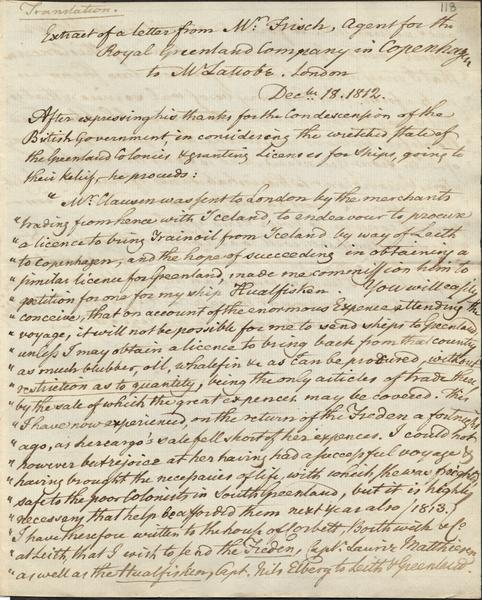 Translation.
118
Extract of a letter from Mr. Frisch, Agent for the
Royal Greenland Company in Copenhagen
to Mr. Latrobe. London
Decbr. 18. 1812.
After expressing his thanks for the Condescension of the
British Government, in considering the wretched State of
the Greenland Colonies & granting Licenses for Ships, going to
their Relief, he proceeds:
" Mr. Clausen was sent to London by the merchants
" trading from hence with Iceland, to endeavour to procure
" a licence to bring Trainoil from Iceland by way of Leith
" to Copenhagen, and the hope of succeeding in obtaining a
" similar licence for Greenland, made me commission him to
" petition for one for my ship Hualfisken. You will easily
" conceive, that on account of the enormous Expence attending the
" voyage, it will not be possible for me to send ships to Greenland
" unless I may obtain a licence to bring back from that country
" as much blubber, oil, whalefin &c as can be produced, without
" restriction as to quantity, being the only articles of trade there
" by the sale of which the great expences may be covered. This
" I have now experienced, on the return of the Freden a fortnight
" ago, as her cargo's sale fell short of her expences. I could not
" however but rejoice at her having had a successful voyage &
" having brought the necessaries of life, with which she was freighted
" safe to the poor Colonists in South Greenland, but it is highly
" necessary that help be afforded them next year also /1813./
" I have therefore written to the house of Corbett Borthwick & Co
" at Leith, that I wish to send the Freden, Capt. Lauriz Mathiesen
" as well as the Hualfisken, Capt. Nils Elberg to Leith & Greenland.